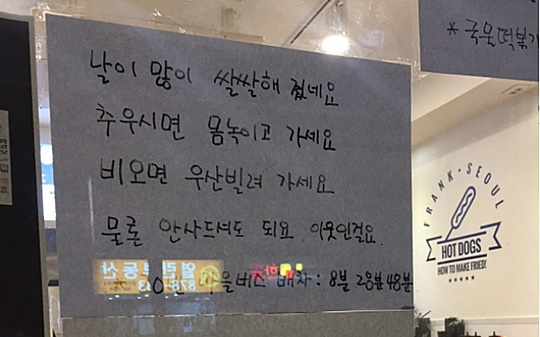 날이 많이 쌀쌀해 졌네요
추우시면 몸녹이고 가세요
비오면 우산빌려 가세요
물론 안사드셔도 되요 이웃인걸요
마을버스 배차 : 8분 28분 48분
* 국물떡볶
FRANK · SEOUL
HOT DOGS
HOW TO MAKE FRIED!